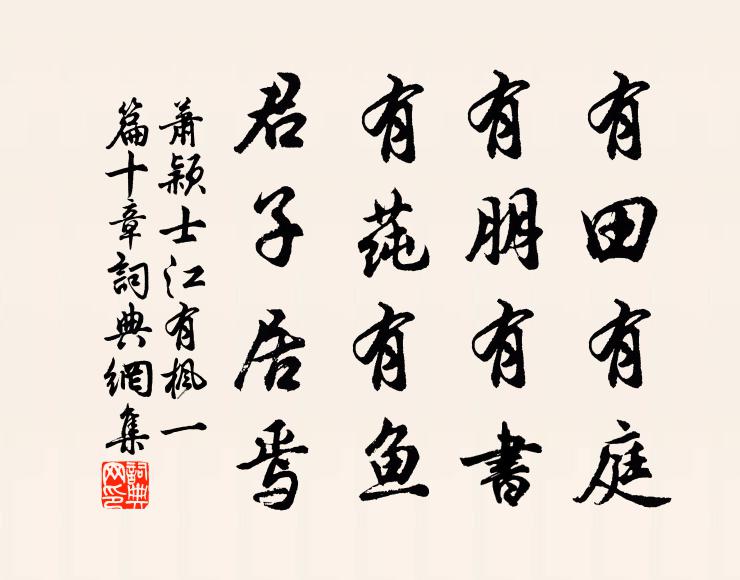 有田有庭
有朋有書
有莼有魚
君子居焉
蕭穎士江有楓一
篇十章詞典網集
詞典网印